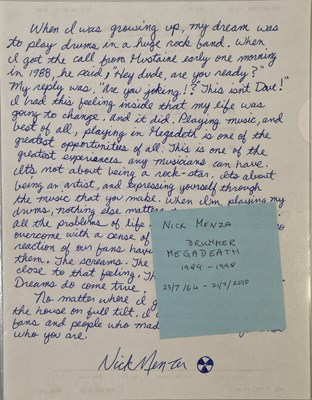 When I was growing up, my dream was
to play drums in a huge rock band. When
I got the call from Mustaine early one morning
in 1988, he said, "Hey dude, are you ready?"
My reply was, "Are you joking!? This isn't Dave!"
I had this feeling inside that my life was
going to change. And it did. Playing music, and
best of all, playing in Megadeth is one of the
greatest opportunities of all. This is one of the
greatest experiences any musicians can have.
It's not about being a rock-star. It's about
being an artist, and expressing yourself through
the music that you make. When I'm playing my
drums, nothing else matters
all the problems of life
overcome with a sense of
reaction of our fans
them. The screams. The
close to that feeling.
Dreams do come true.
No matter where I
the house on full tilt, I
fans and people who made
who you are.
Nick Menza
NICK MENZA
DRUMMER
MEGADEATH
1989 - 1998
23/7/64 - 21/5/2010